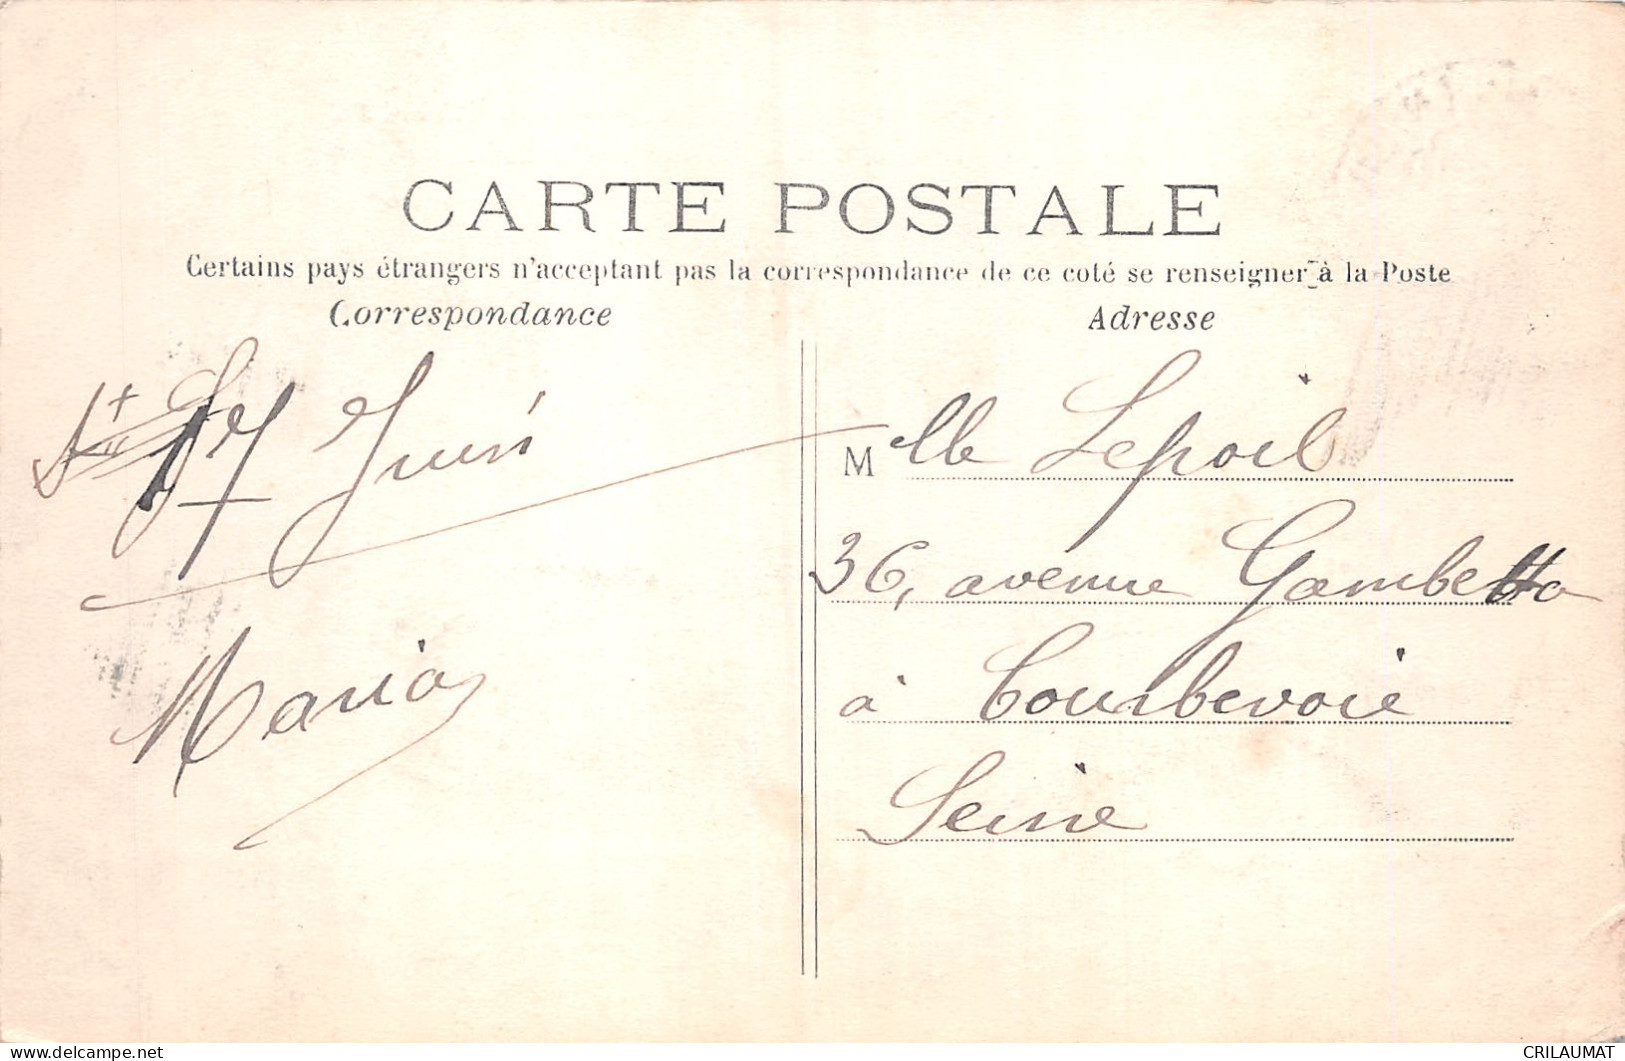 CARTE POSTALE
Certains pays étrangers n'acceptant pas la correspondance de ce coté se renseigner à la Poste
Correspondance
Adresse
17 Juin
Maria
Mlle Lepoil
36, avenue Gambetta
à Courbevoie
Seine
CRILAUMAT